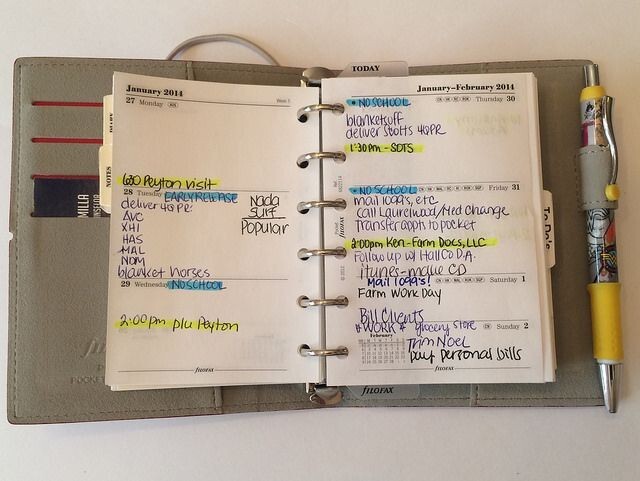 TODAY
January 2014
27 Monday
Week 5
6:30 Peyton visit
28 Tuesday EARLY RELEASE
deliver 4QPR:
AVC
XHI
HAS
MAL
NOM
blanket horses
Nada
Surf
Popular
29 Wednesday NO SCHOOL
2:00pm p/u Peyton
FILOFAX
NOTES
MILLA
POCKET
January–February 2014
NO SCHOOL
Thursday 30
deliver Stotts 4QPR
1:30pm - SOTS
NO SCHOOL
Friday 31
mail 1099's, etc
call Laurelwood/Med Change
Transfer appts to pocket
2:00pm Ken - Farm Docs, LLC
Follow up w/ Hall Co D.A.
itunes - make CD
Mail 1099's!
Saturday 1
Farm Work Day
Bill Clients
*WORK* grocery store
Sunday 2
February
Trim Noel
pay personal bills
FILOFAX
FILOFAX
To Do's